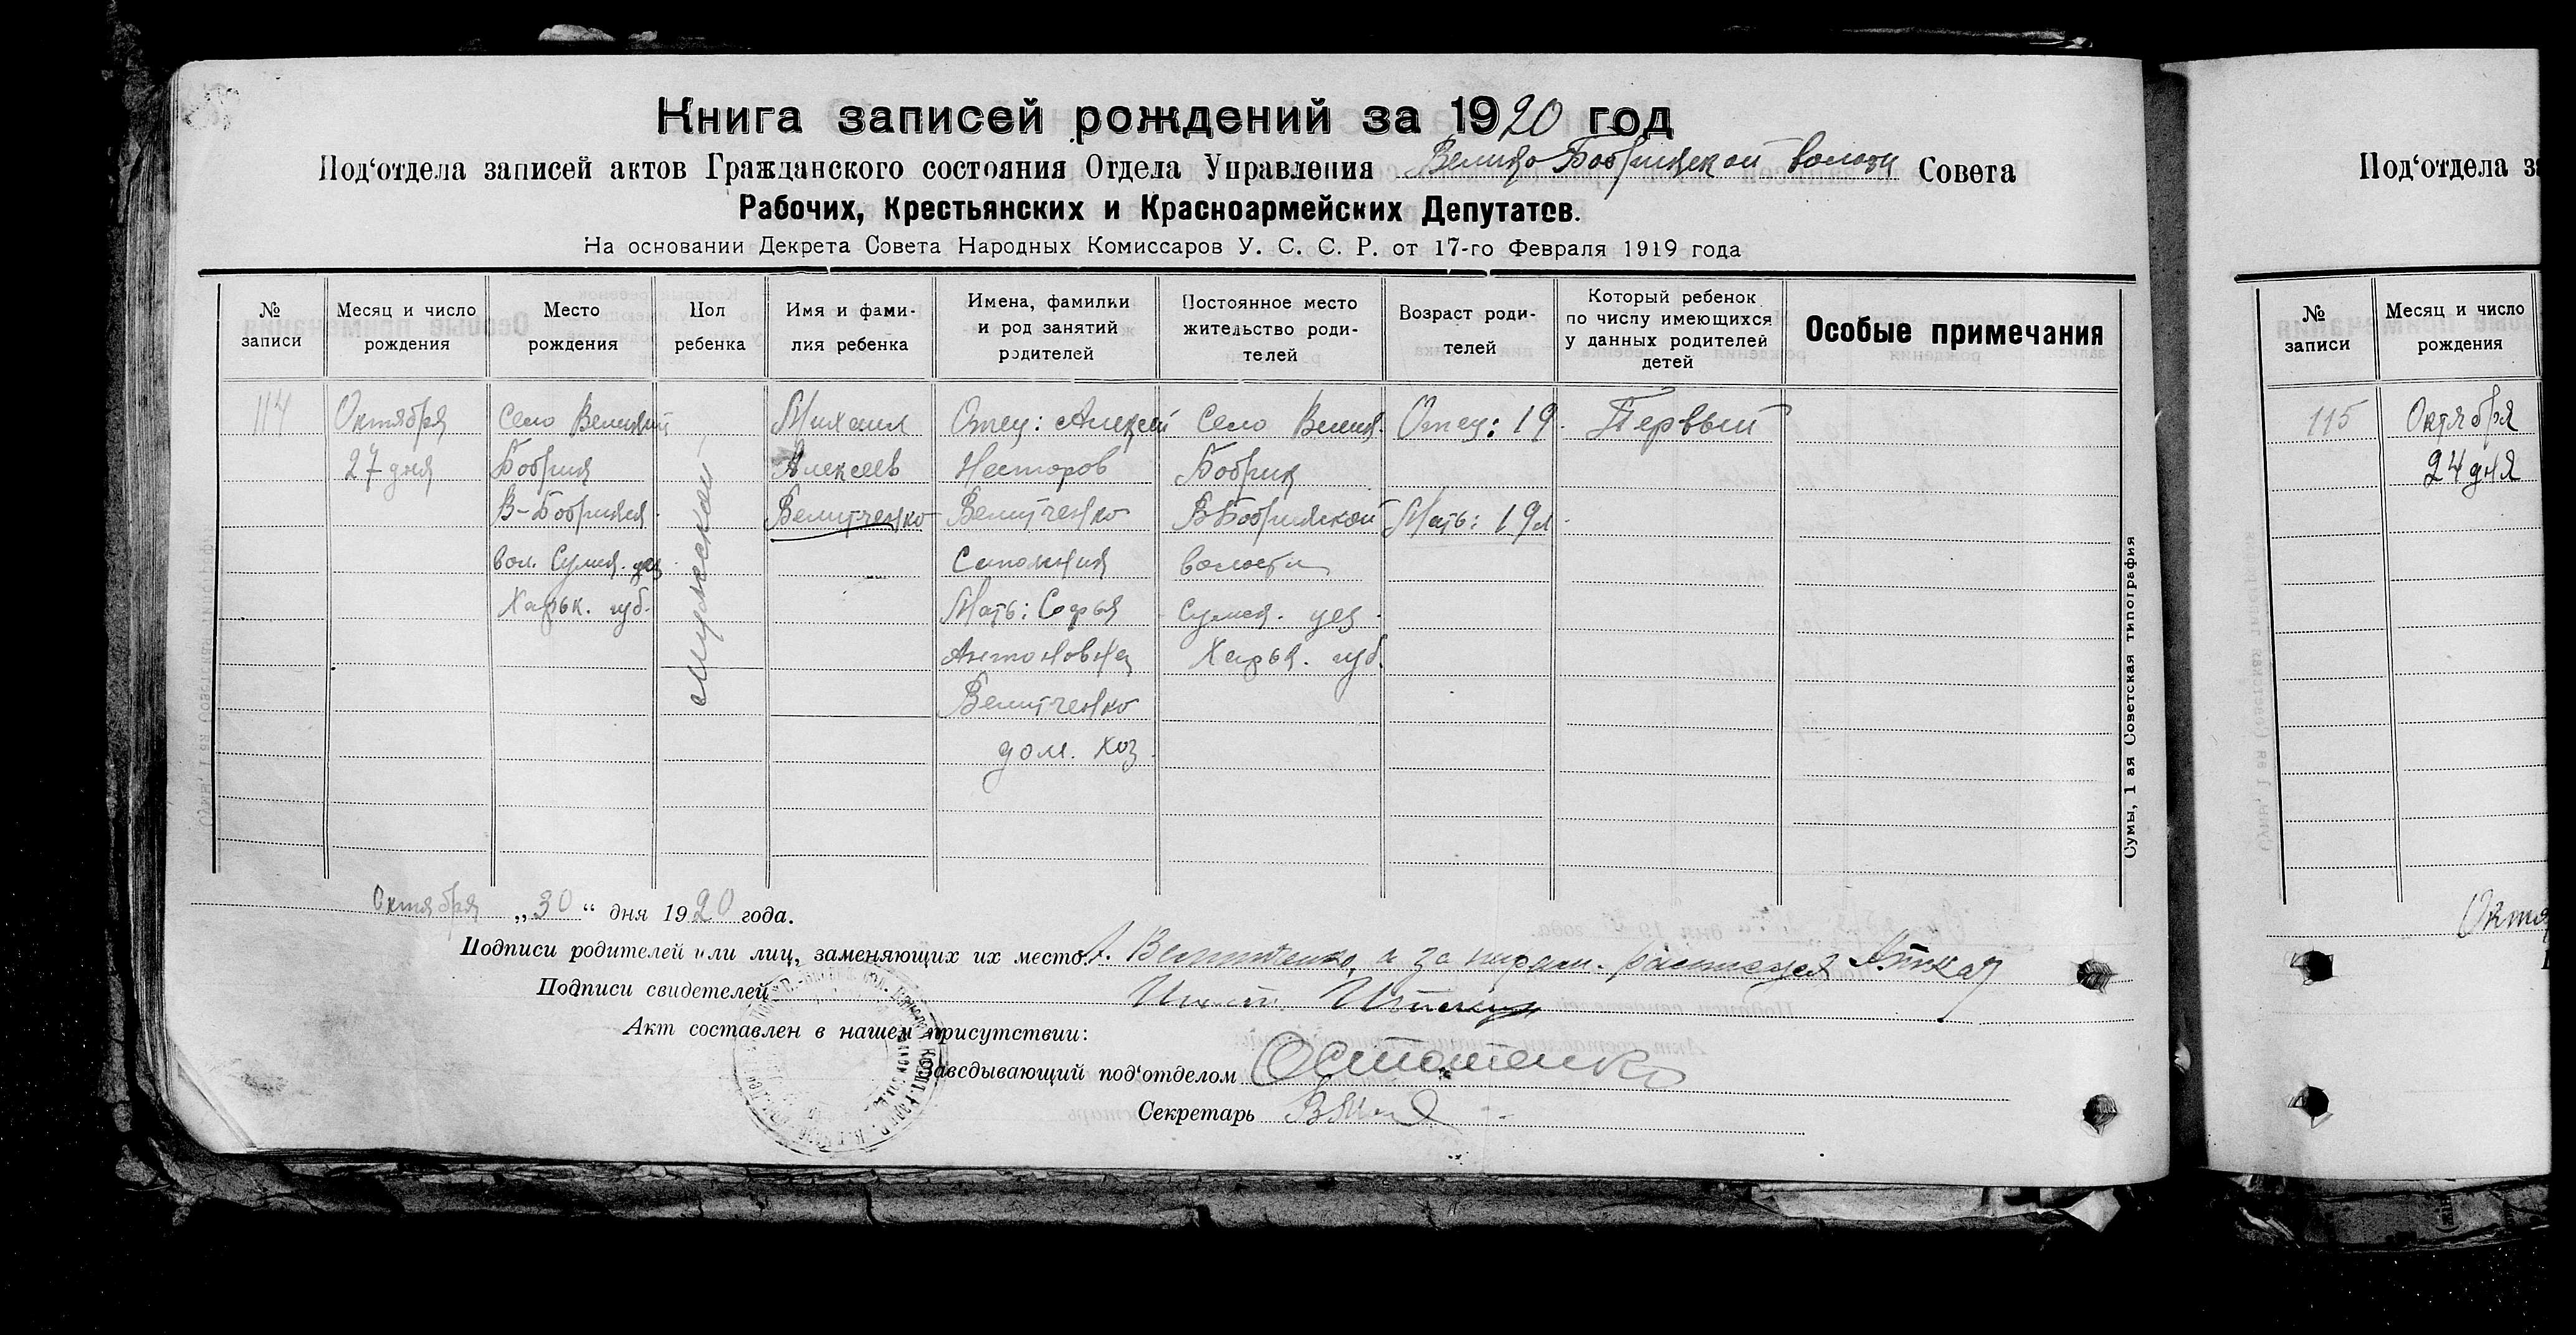 Книга записей рождений за 1920 год
Под'отдела записей актов Гражданского состояния Отдела Управления Велико Бобрицкой волости Совета
Рабочих, Крестьянских и Красноармейских Депутатов.
На основании Декрета Совета Народных Комиссаров У. С. С. Р. от 17-го Февраля 1919 года
№ записи
Месяц и число рождения
Место рождения
Пол ребенка
Имя и фами-
лия ребенка
Имена, фамилки
и род занятий
родителей
Постоянное место
жительство роди-
телей
Возраст роди-
телей
Который ребенок
по числу имеющихся
у данных родителей
детей
Особые примечания
114
Октября
27 дня
Село Великий
Бобрик
В-Бобрицк.
вол. Сумск. уез.
Харьк. губ.
мужской
Михаил
Алексеев
Велитченко
Отец: Алексей
Несторов
Велитченко
Мать: Софья
Антоновна
Велитченко
дом. хоз.
Село Велик.
Бобрик
В Бобрицкой
волости
Сумск. уез.
Харьк. губ.
Отец: 19
Мать: 19 л
Первый
Октября „30“ дня 1920 года.
Подписи родителей или лиц, заменяющих их место
Подписи свидетелей
Акт составлен в нашем присутствии:
Заведывающий под'отделом
Секретарь
Сумы, 1 ая Советская типография
Под'отдела
№ записи
Месяц и число рождения
115
Октября
24 дня